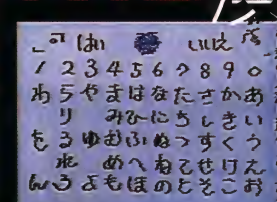 はい いいえ
1 2 3 4 5 6 7 8 9 0
わ ら や ま は な た さ か あ
り み ひ に ち し き い
を る ゆ む ふ ぬ つ す く う
れ め へ ね て せ け え
ん ろ よ も ほ の と そ こ お